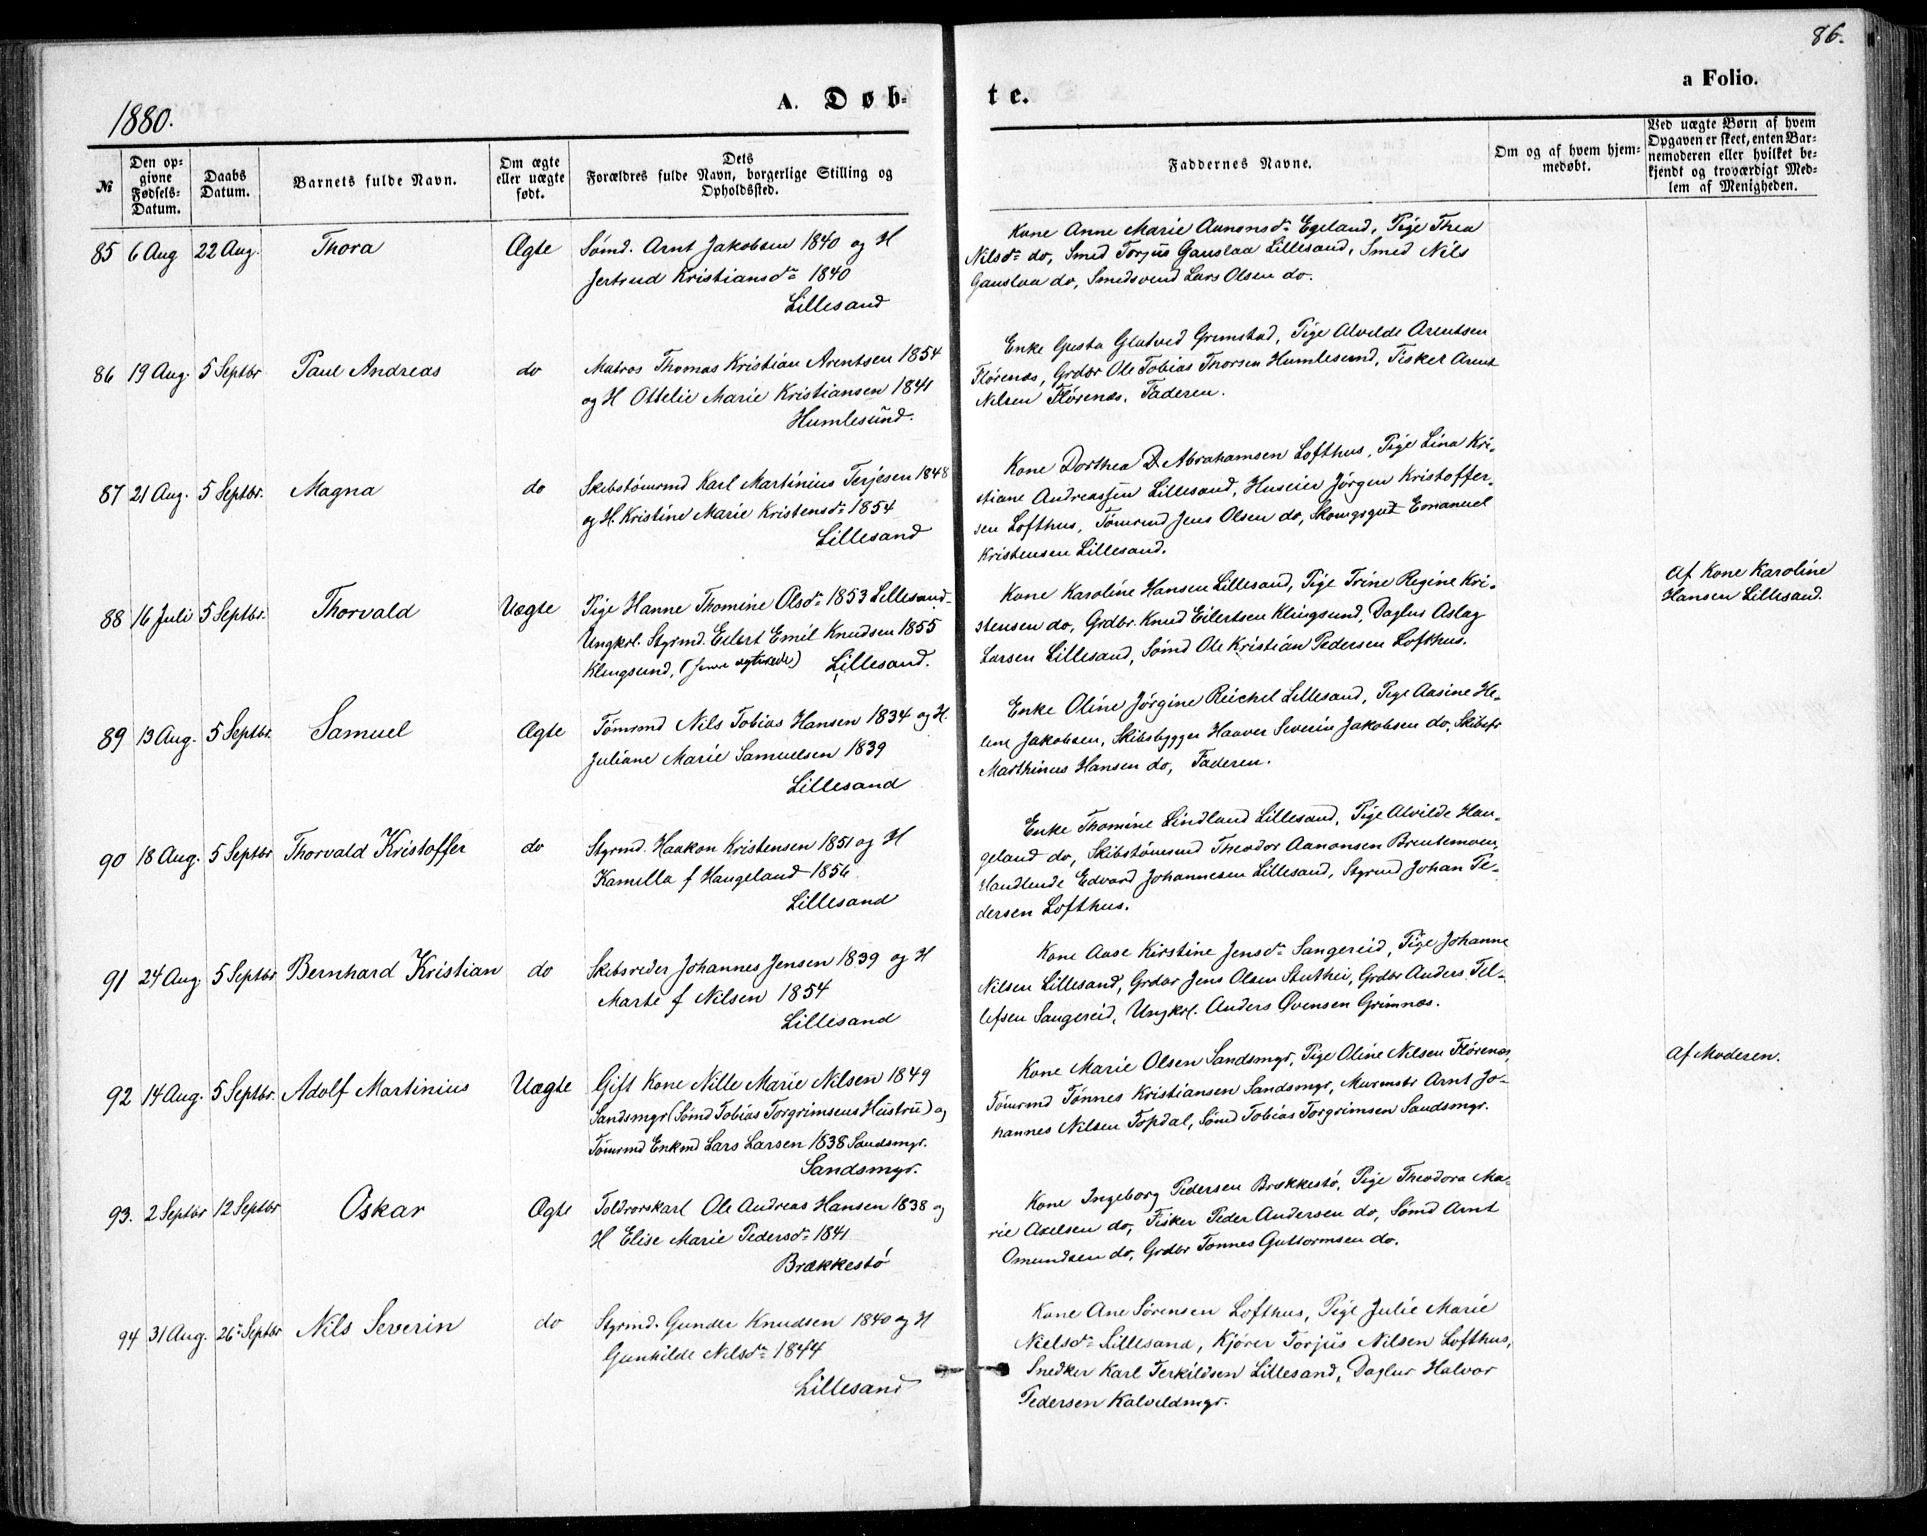 86.
a Folio.
A. Døb-
te.
1880.
№
Den op-
givne
Fødsels-
Datum.
Daabs
Datum.
Barnets fulde Navn.
Om ægte
eller uægte
født.
Dets
Forældres fulde Navn, borgerlige Stilling og
Opholdssted.
Faddernes Navne.
Om og af hvem hjem-
medøbt.
Ved uægte Børn af hvem
Opgaven er skeet, enten Bar-
nemoderen eller hvilket be-
kjendt og troværdigt Med-
lem af Menigheden.
85 6 Aug 22 Aug. Thora Ægte
Sømd. Arnt Jakobsen 1840 og H
Jertrud Kristiansdr 1840
Lillesand
Kone Anne Marie Aanonsdr Egeland, Pige Thea
Nilsdr do, Smed Torjus Gauslaa Lillesand, Smed Nils
Gauslaa do, Smedsvend Lars Olsen do.
86 19 Aug. 5 Septbr Paul Andreas do
Matros Thomas Kristian Arentsen 1854
og H Ottelie Marie Kristiansen 1841
Humlesund.
Enke Glatved Grimstad, Pige Alvilde Arentsen
Flørenæs, Grdbr Ole Tobias Thorsen Humlesund, Fisker Arent
Nilsen Flørenæs, Faderen.
87 21 Aug. 5 Septbr. Magna do
Skibstømrmd Karl Martinius Terjesen 1848
og H. Kristine Marie Kristensdr 1854
Lillesand
Kone Dorthea D. Abrahamsen Lofthus, Pige Lina Kri-
stiane Andreassen Lillesand, Huseier Jørgen Kristoffer-
sen Lofthus, Tømrmd Jens Olsen do, Emanuel
Kristensen Lillesand.
88 16 Juli 5 Septbr. Thorvald Uægte
Pige Hanne Thomine Olsdr 1853 Lillesand-
Ungkrl. Styrmd. Eilert Emil Knudsen 1855
Klingsund, Lillesand.
Kone Karoline Hansen Lillesand, Pige Trine Regine Kri-
stensen do, Grdbr. Knud Eilertsen Klingsund, Daglnr Aslag
Larsen Lillesand, Sømd Ole Kristian Pedersen Lofthus.
Af Kone Karoline
Hansen Lillesand.
89 13 Aug. 5 Septbr. Samuel Ægte
Tømrmd Nils Tobias Hansen 1834 og H.
Juliane Marie Samuelsen 1839
Lillesand
Enke Oline Jørgine Reichel Lillesand, Pige Aasine He-
lene Jakobsen, Skibsbygger Haaver Severin Jakobsen do, Skibsfr
Marthinus Hansen do, Faderen.
90 18 Aug. 5 Septbr Thorvald Kristoffer do
Styrmd. Haakon Kristensen 1851 og H
Kamilla f Haugeland 1856
Lillesand
Enke Thomine Lindland Lillesand, Pige Alvilde Hau-
geland do, Skibstømrmd Theodor Aanonsen Brentemoen,
Handlende Edvard Johannesen Lillesand, Styrmd Johan Pe-
dersen Lofthus.
91 24 Aug 5 Septbr Bernhard Kristian do
Skibsreder Johannes Jensen 1839 og H
Marte f Nilsen 1854
Lillesand
Kone Aase Kirstine Jensdr Sangereid, Pige Johanne
Nilsen Lillesand, Grdbr Jens Olsen Stukhei, Grdbr Anders Tel-
lefsen Sangereid, Ungkrl. Anders Øvensen Grimnæs.
92 14 Aug. 5 Septbr. Adolf Martinius Uægte
Gift Kone Nille Marie Nilsen 1849
Sandsmyr (Sømd Tobias Torgrimsens Hustru) og
Tømrmd Enkmd Lars Larsen 1838 Sandsmyr.
Sandsmyr.
Kone Marie Olsen Sandsmyr, Pige Oline Nilsen Flørenæs,
Tømrmd Tønnes Kristiansen Sandsmyr, Murmstr Arnt Jo-
hannes Nilsen Topdal, Sømd Tobias Torgrimsen Sandsmyr.
Af Moderen.
93. 2 Septbr 12 Septbr Oskar Ægte
Toldrorskarl Ole Andreas Hansen 1838 og
H Elise Marie Pedersdr 1841
Brækkestø
Kone Ingeborg Pedersen Brækkestø, Pige Theodora Ma-
rie Axelsen do, Fisker Peder Andersen do, Sømd Arnt
Omundsen do, Grdbr Tønnes Guttormsen do.
94 31 Aug. 26 Septbr Nils Severin do
Styrmd. Gunder Knudsen 1840 og H
Gunhilde Nilsdr 1844
Lillesand
Kone Ane Sørensen Lofthus, Pige Julie Marie
Nielsdr Lillesand, Kjører Torjus Nilsen Lofthus,
Snedker Karl Terkildsen Lillesand, Daglnr Halvor
Pedersen Kalvildmyr.